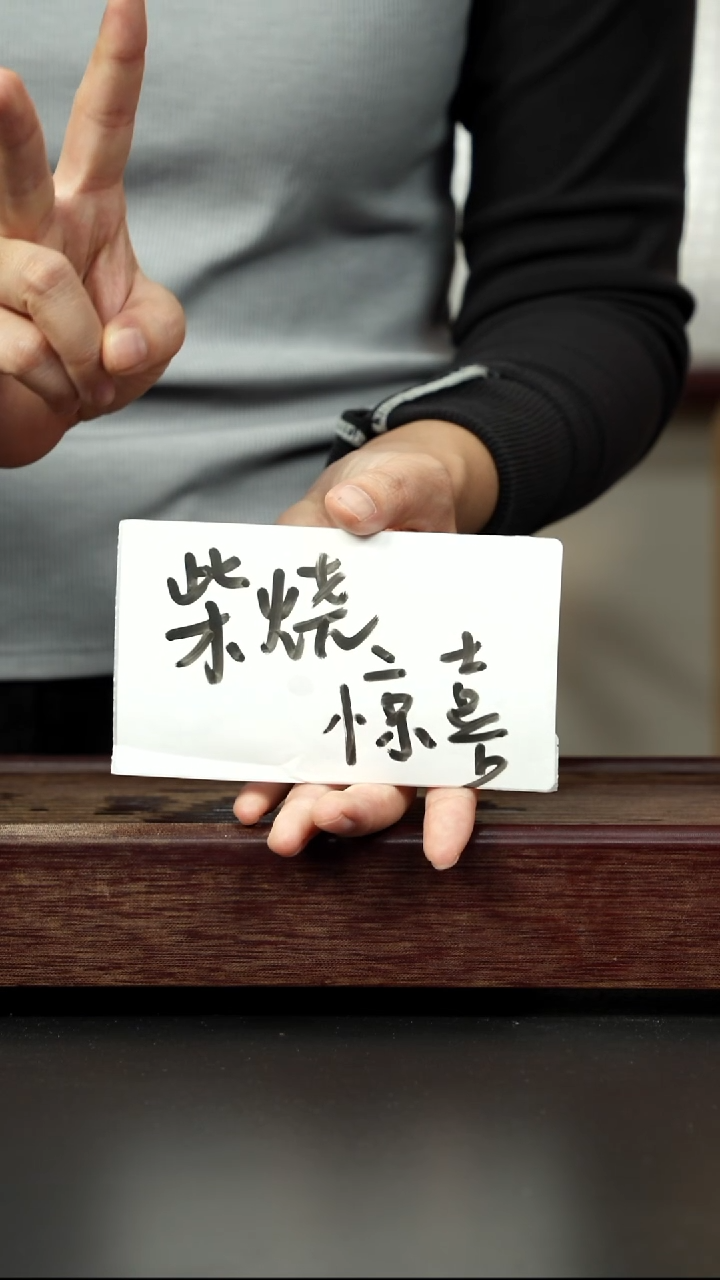 柴烧
惊喜